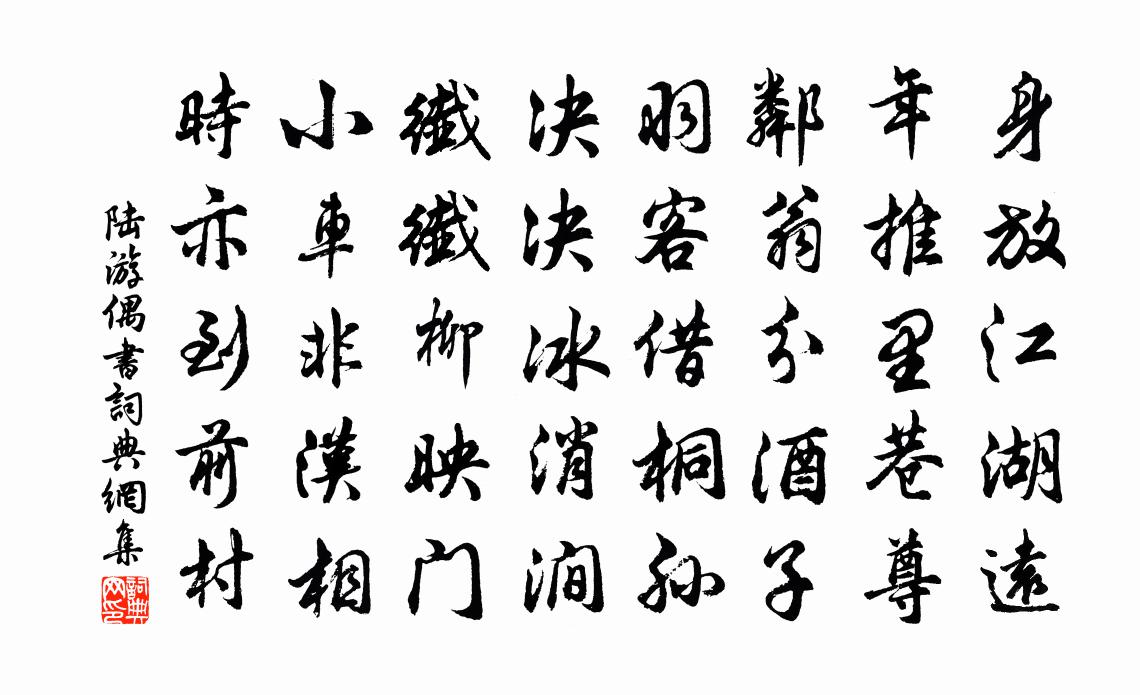 身放江湖遠
年推里巷尊
鄰翁分酒子
羽客借桐孫
決決冰消澗
纖纖柳映門
小車非漢相
時亦到前村
陸游偶書詞典網集
詞典网印